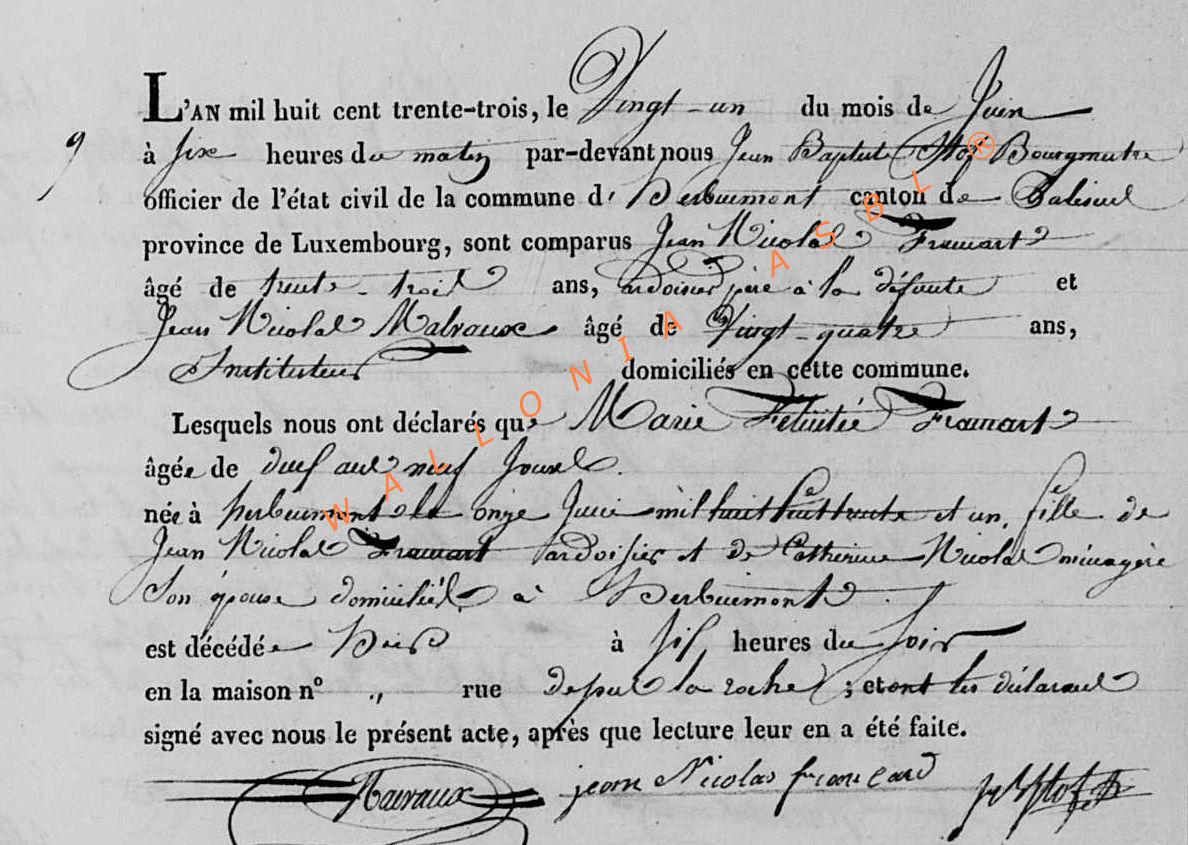 L'AN mil huit cent trente-trois, le Vingt-un du mois de Juin
9
à six heures du matin par-devant nous Jean Baptiste Bourgmestre
officier de l'état civil de la commune d' Herbeumont canton de Paliseul
province de Luxembourg, sont comparus Jean Nicolas Framart
âgé de trente-trois ans, ardoisier père à la défunte et
Jean Nicolas Malvaux âgé de Vingt-quatre ans,
Instituteur domiciliés en cette commune.
Lesquels nous ont déclarés que Marie Felicitée Framart
âgée de deux ans neuf Jours.
née à herbeumont le onze Juin mil huit cent trente et un, fille de
Jean Nicolas Framart ardoisier et de Catherine Nicolas ménagère
Son épouse domiciliés à Herbeumont
est décédée Hier à six heures du soir
en la maison n° ., rue depas la roche ; et ont les déclarans
signé avec nous le présent acte, après que lecture leur en a été faite.
Malvaux jean Nicolas framcard
WALLONIA ASBL ®